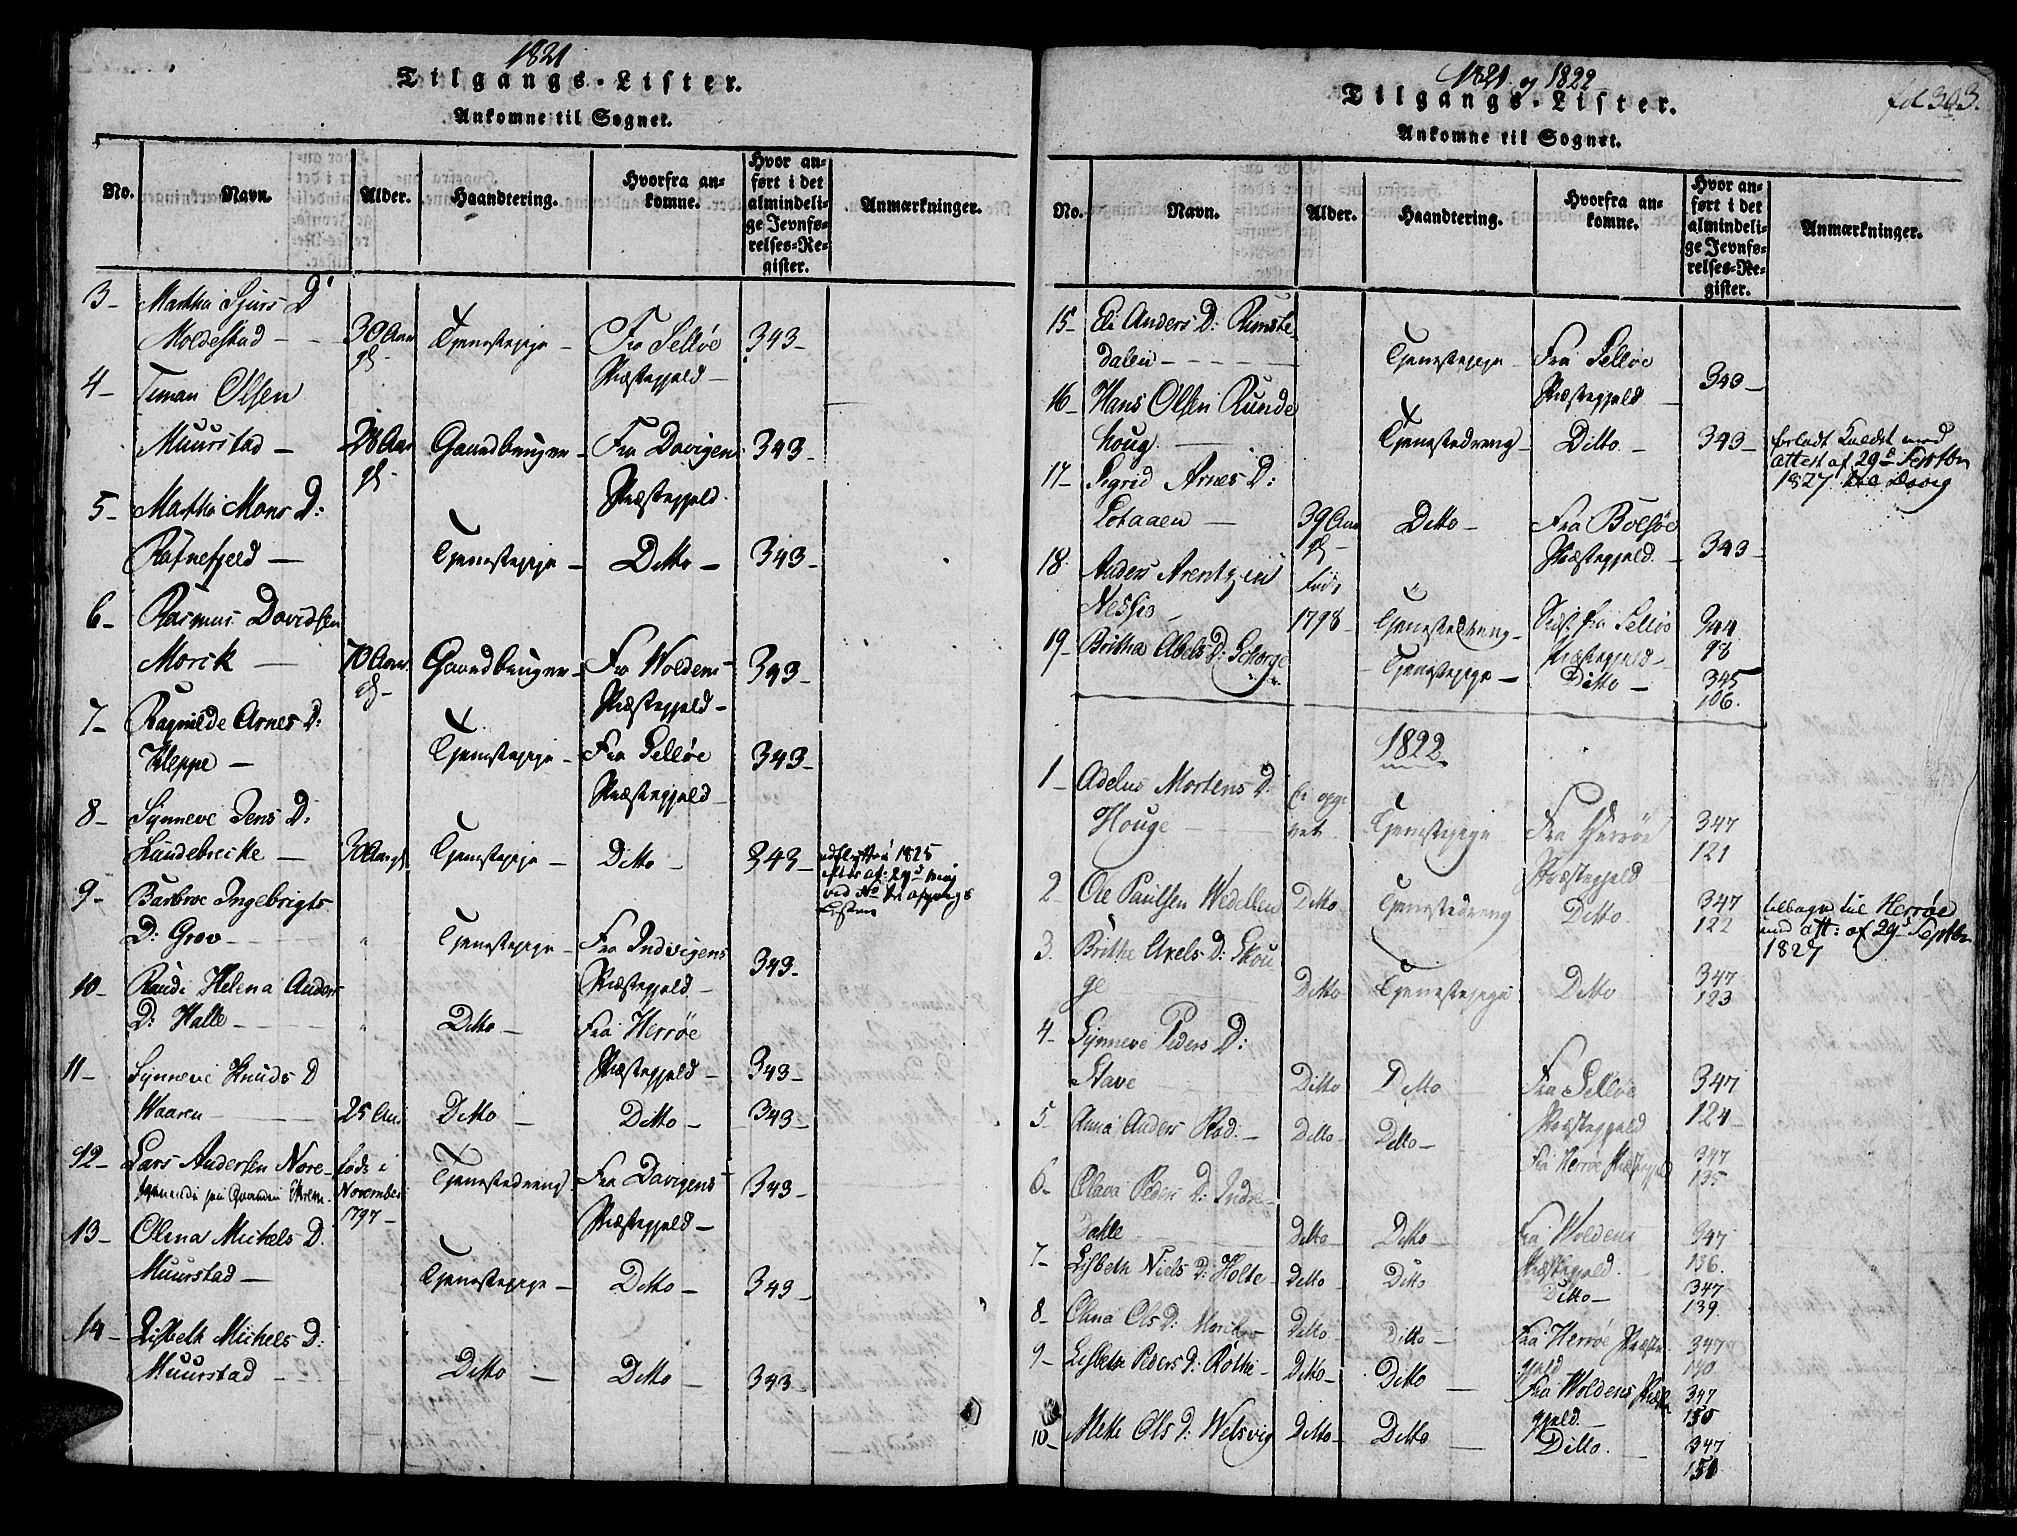 1821
Tilgangs-Lister.
Ankomne til Sognet.
No. Navn. Alder. Haandtering. Hvorfra ankomne. Hvor anført i det almindelige Jevnførelses-Register. Anmærkninger.
3- Martha Sjurs D
Moldestad - 30 Aar gl- Tjenestepige - Fra Selløe Præstegjeld- 343-
4- Timan Olsen
Muurstad - 28 Aar gl- Gaardbruger- Fra Davigens Præstegjeld 343-
5- Martha Mons D:
Rafnefjeld - Tjenestepige - Ditto - 343-
6- Rasmus Davidsen
Morik - 70 Aar gl- Gaardbruger- Fra Woldens Præstegjeld- 343-
7- Ragnilde Arnes D:
Kleppe - Tjenestepige - Fra Selløe Præstegjeld- 343-
8- Synneve Jens D:
Lundebrecke - 30 Aar gl. Tjenestepige - Ditto - 343- udflyttet 1825
9- Barbroe Ingebrigts
D: Grov - Tjenestepige - Fra Indvigens Præstegjeld- 343-
10- Randi Helena Anders
D: Halte - Ditto - Fra Herrøe Præstegjeld- 343-
11- Synneve Knuds D
Waaren - 25 Aar Ditto - Ditto - 343-
12- Lars Andersen Nore- født i November 1797- Tjenestedreng Fra Davigens Præstegjeld- 343-
13- Olina Mickels D.
Muurstad - Tjenestepige - Ditto - 343-
14- Lisbeth Mickels D:
Muurstad - Ditto - Ditto - 343-
1821 og 1822
fol 303.
Tilgangs-Lister.
Ankomne til Sognet.
No. Navn. Alder. Haandtering. Hvorfra ankomne. Hvor anført i det almindelige Jevnførelses-Register. Anmærkninger.
15- Eli Anders D: Rimste
dalen - Tjenestepige - Fra Selløe Præstegjeld - 343-
16- Hans Olsen Runde
houg - Tjenestedreng- Ditto - 343- forladt Kaldet med
attest af 29d Septbr
1827 til Davig
17- Sigrid Arnes D:
Lotaaen - 39 Aar gl- Ditto - Fra Bolsøe Præstegjeld - 343-
18. Anders Arentzen
Nessio - Født 1798- Tjenestedreng- Sidst fra Selløe Præstegjeld- 344 98
19- Brithe Abels D: Tjenestepige - Ditto - 345 106.
1822.
1- Adelus Mortens D.
Houge - Ei opgivet Tjenestepige Fra Herrøe Præstegjeld 347 121
2- Ole Paulsen Wedellen Ditto Tjenestedreng Ditto. 347 122 tilbage til Herrøe
med att: af 29d Septbr
1827
3. Brithe Axels D: Skou
ge - Ditto Tjenestepige Ditto 347 123
4- Synneve Peders D:
Stave - Ditto Ditto - Fra Selløe Præstegjeld 347 124-
5 Anna Anders Rad. - Ditto - Ditto - Fra Herrøe Præstegjeld 347 135
6- Olava Peders D: Indre-
Dahle - Ditto Ditto - Fra Woldens Præstegjeld. 347 136.
7- Lisbeth Niels D: Holte- Ditto Ditto Ditto - 347 139.
8- Olina Ols D: Ditto Ditto - Fra Herrøe Præstegjeld 347 140
9- Lisbeth Peders D: Rothe- Ditto - Ditto - Fra Woldens Præstegjeld. - 347 150
10- Mette Ols D: Welsvig Ditto - Ditto - Ditto. 347 151